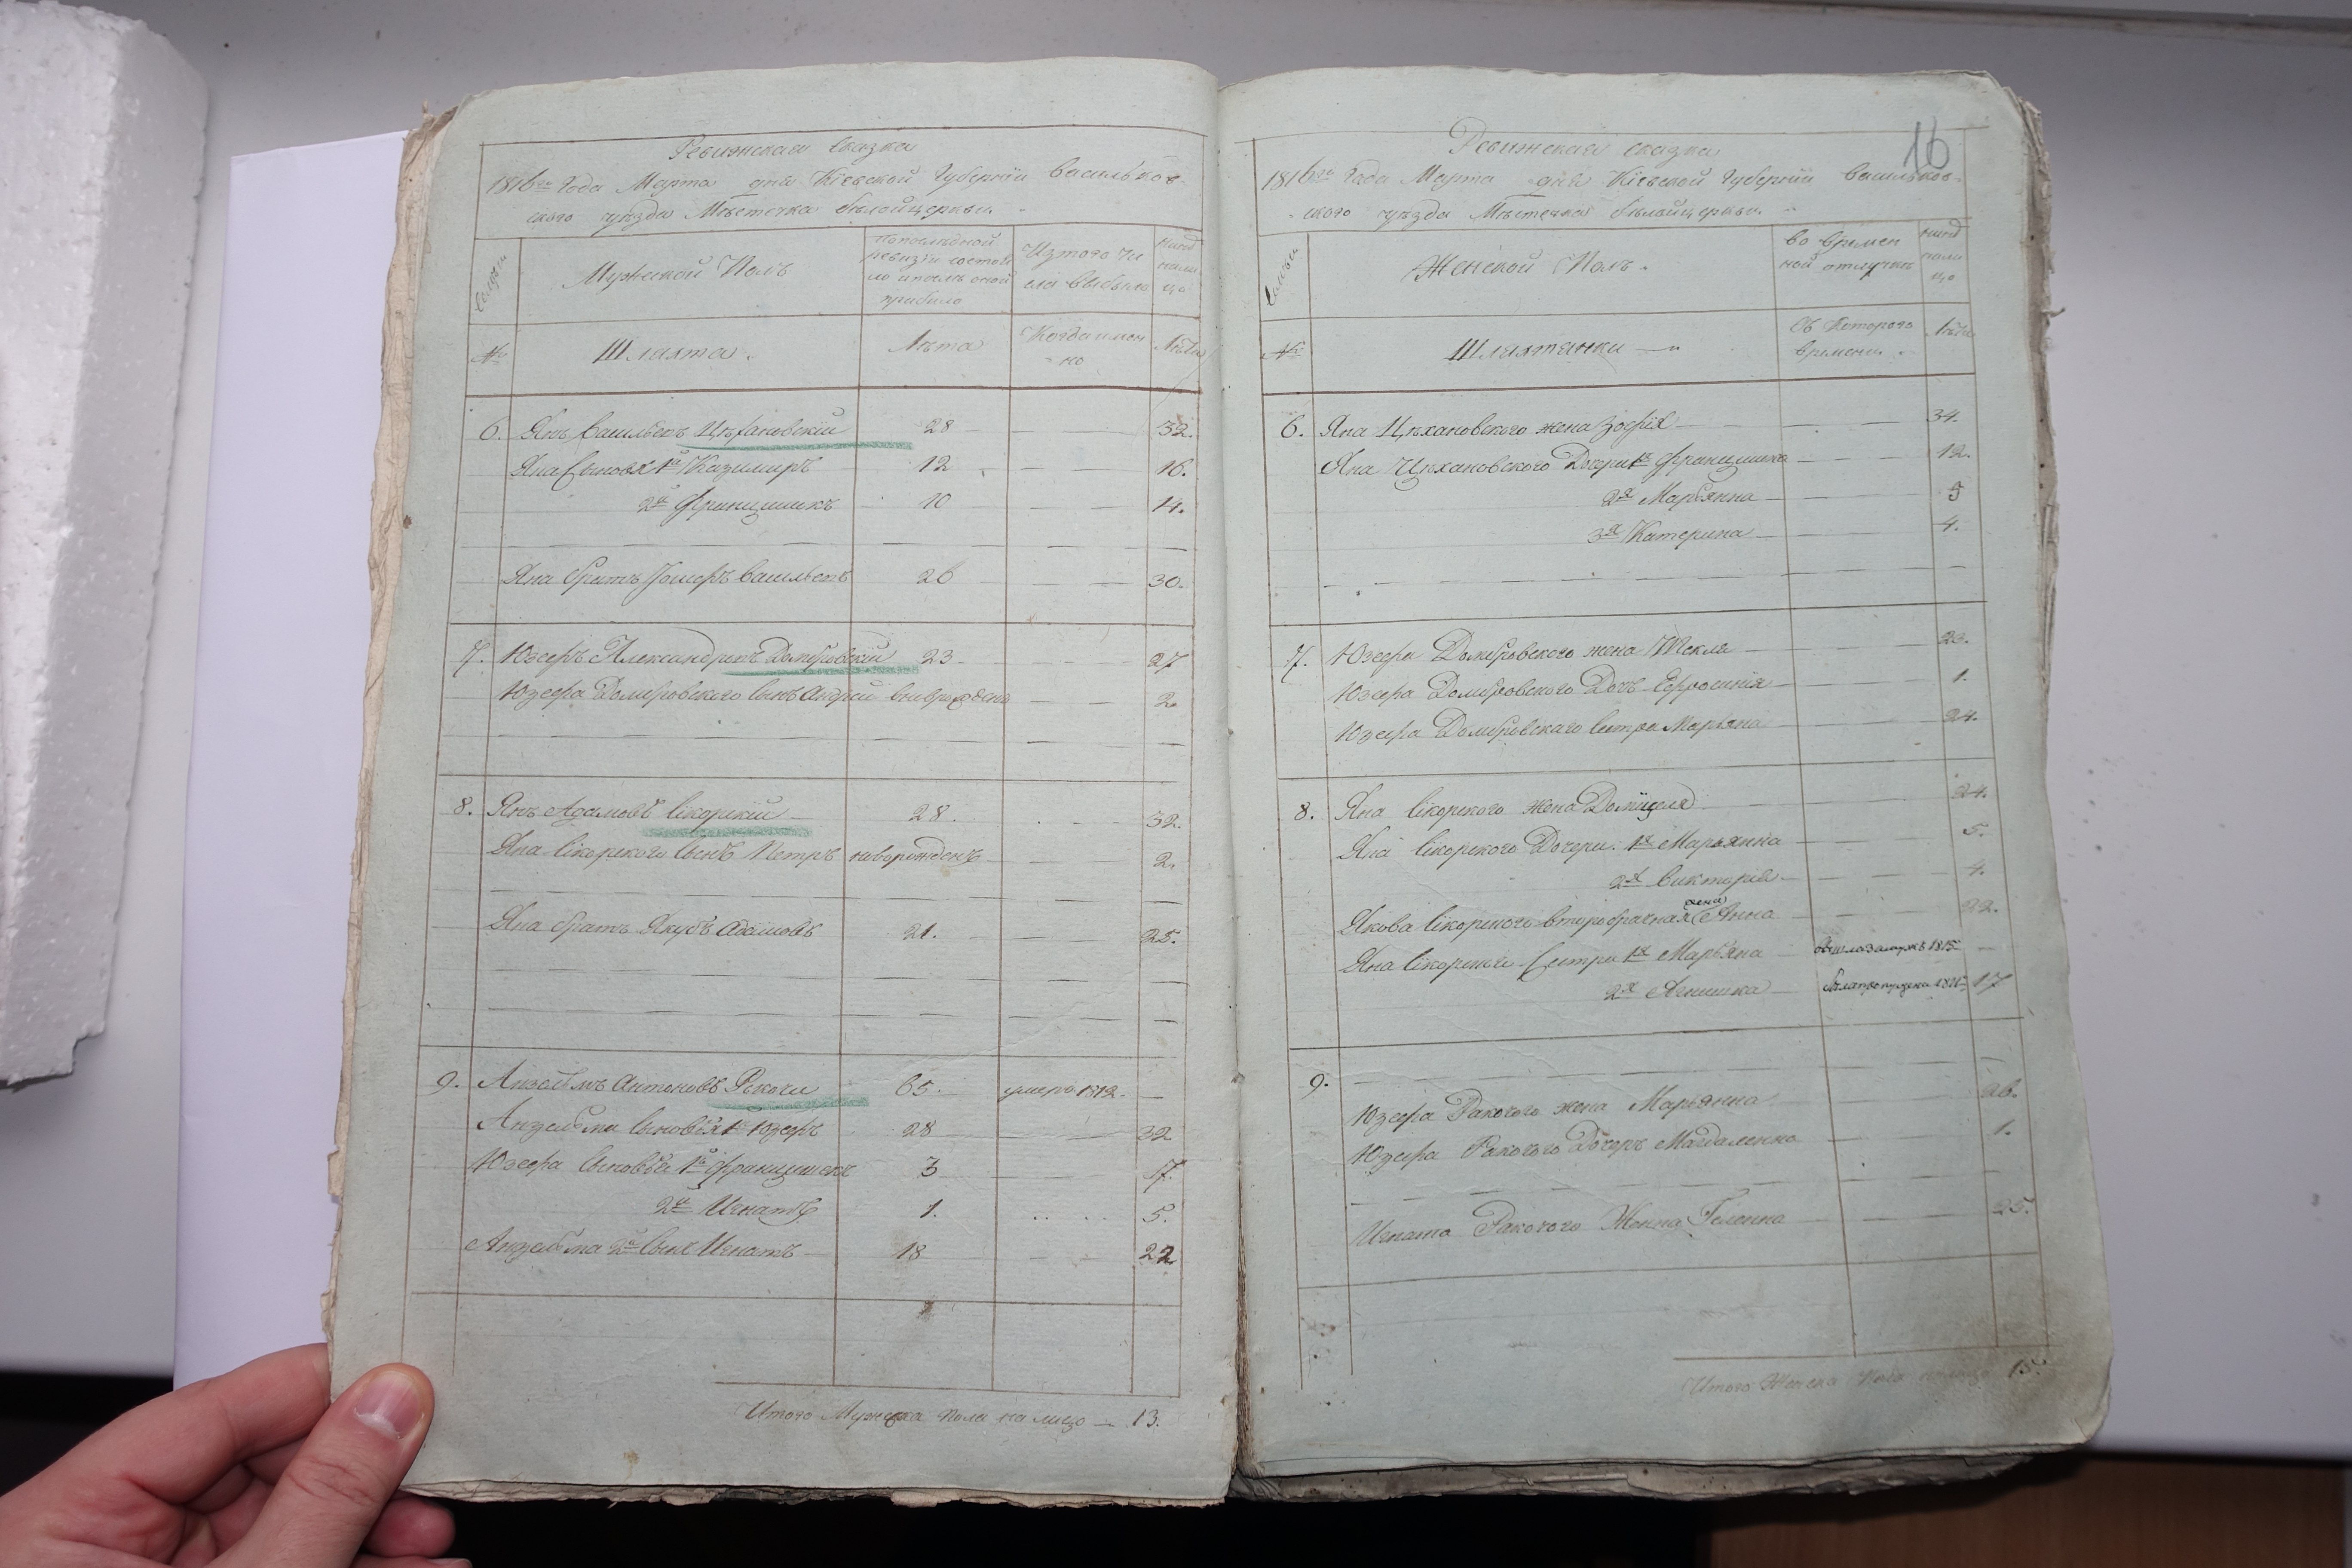 Ревижская сказка
1816го Года Марта дня Кіевской Губерніи Васильков-
ского уезда Местечка белойцеркви.
Семьи
Мужеской Полъ
По последной ревизіи состояло и после оной прибыло
Изтого числа выбыло
ныне налицо
№
Шляхта.
Лета
Когда именно
Лета
6. Янъ Васильевъ Цехановскій 28 — — 32.
Яна Сыновя 1й Казимиръ 12 — — 16.
2й Францишекъ 10 — — 14.
Яна братъ Іосифъ Васильевъ 26 — 30.
7. Юзефъ Александровъ Домбровскій 23 — — 27
Юзефа Домбровского сынъ Андрей вновърожденъ — — 2.
8. Янъ Адамовъ Сікорскій 28. — 32.
Яна Сікорского сынъ Петръ новорожденъ — — 2.
Яна братъ Якубъ Адамовъ 21. — — 25.
9. Анзельмъ Антоновъ Ракочи 65. умеръ 1812. —
Анзельма Сыновья 1й Юзефъ 28 — 32
Юзефа Сыновья 1й Францишекъ 3 — — 7.
2й Игнатъ 1. 5.
Анзельма 2й Сынъ Игнатъ 18 — — 22
Итого Мужеска пола на лицо — 13.
16
Ревижская сказка
1816го Года Марта дня Кіевской Губерніи Васильков-
ского уезда Местечка белойцеркви.
Семьи
Женской Полъ.
во времен
ной отлучке
ныне налицо
№
Шляхтянки —
Съ которого
времени.
Лета
6. Яна Цехановского жена Зофія — — 34.
Яна Цехановского Дочери 1я Францишка — — 12.
2я Марьянна — — 9
3я Катерина — — 4.
7. Юзефа Домбровского жена Текля — — 23.
Юзефа Домбровского Дочь Ефросинія — — 1.
Юзефа Домбровскаго Сестра Марьяна — — 24.
8. Яна Сікорского жена Доміцеля — — 24.
Яна Сікорского Дочери. 1я Марьянна — — 5.
2я Викторія — — 4.
Якова Сікорского второбрачная жена Анна — — 22.
Яна Сікорского Сестри 1я Марьяна — вышла замужъ 1815 —
2я Агнишка — была пропущена 1811 17
9.
Юзефа Ракочого жена Марьянна — — 26.
Юзефа Ракочого Дочеръ Магдаленна — — 1.
Игната Ракочого Жонна Геленна — — 25.
Итого Женска пола налицо 15.